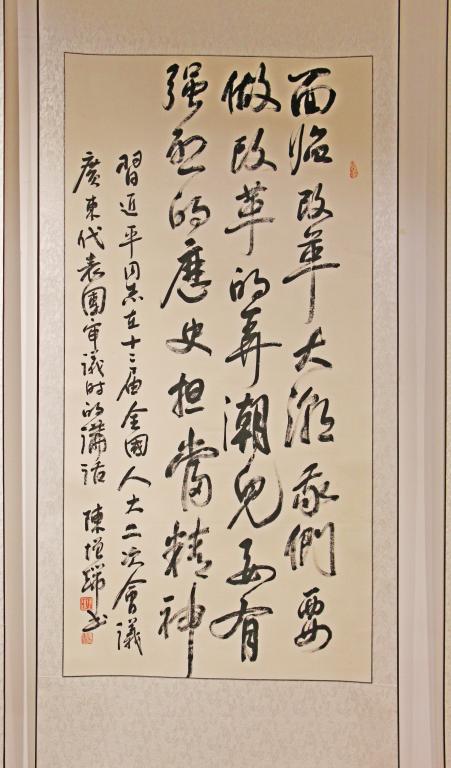 面临改革大潮我們要
做改革的弄潮兒要有
强烈的歷史担當精神
習近平同志在十二届全國人大二次會議
廣東代表團审议时的講话 陳增瑞书